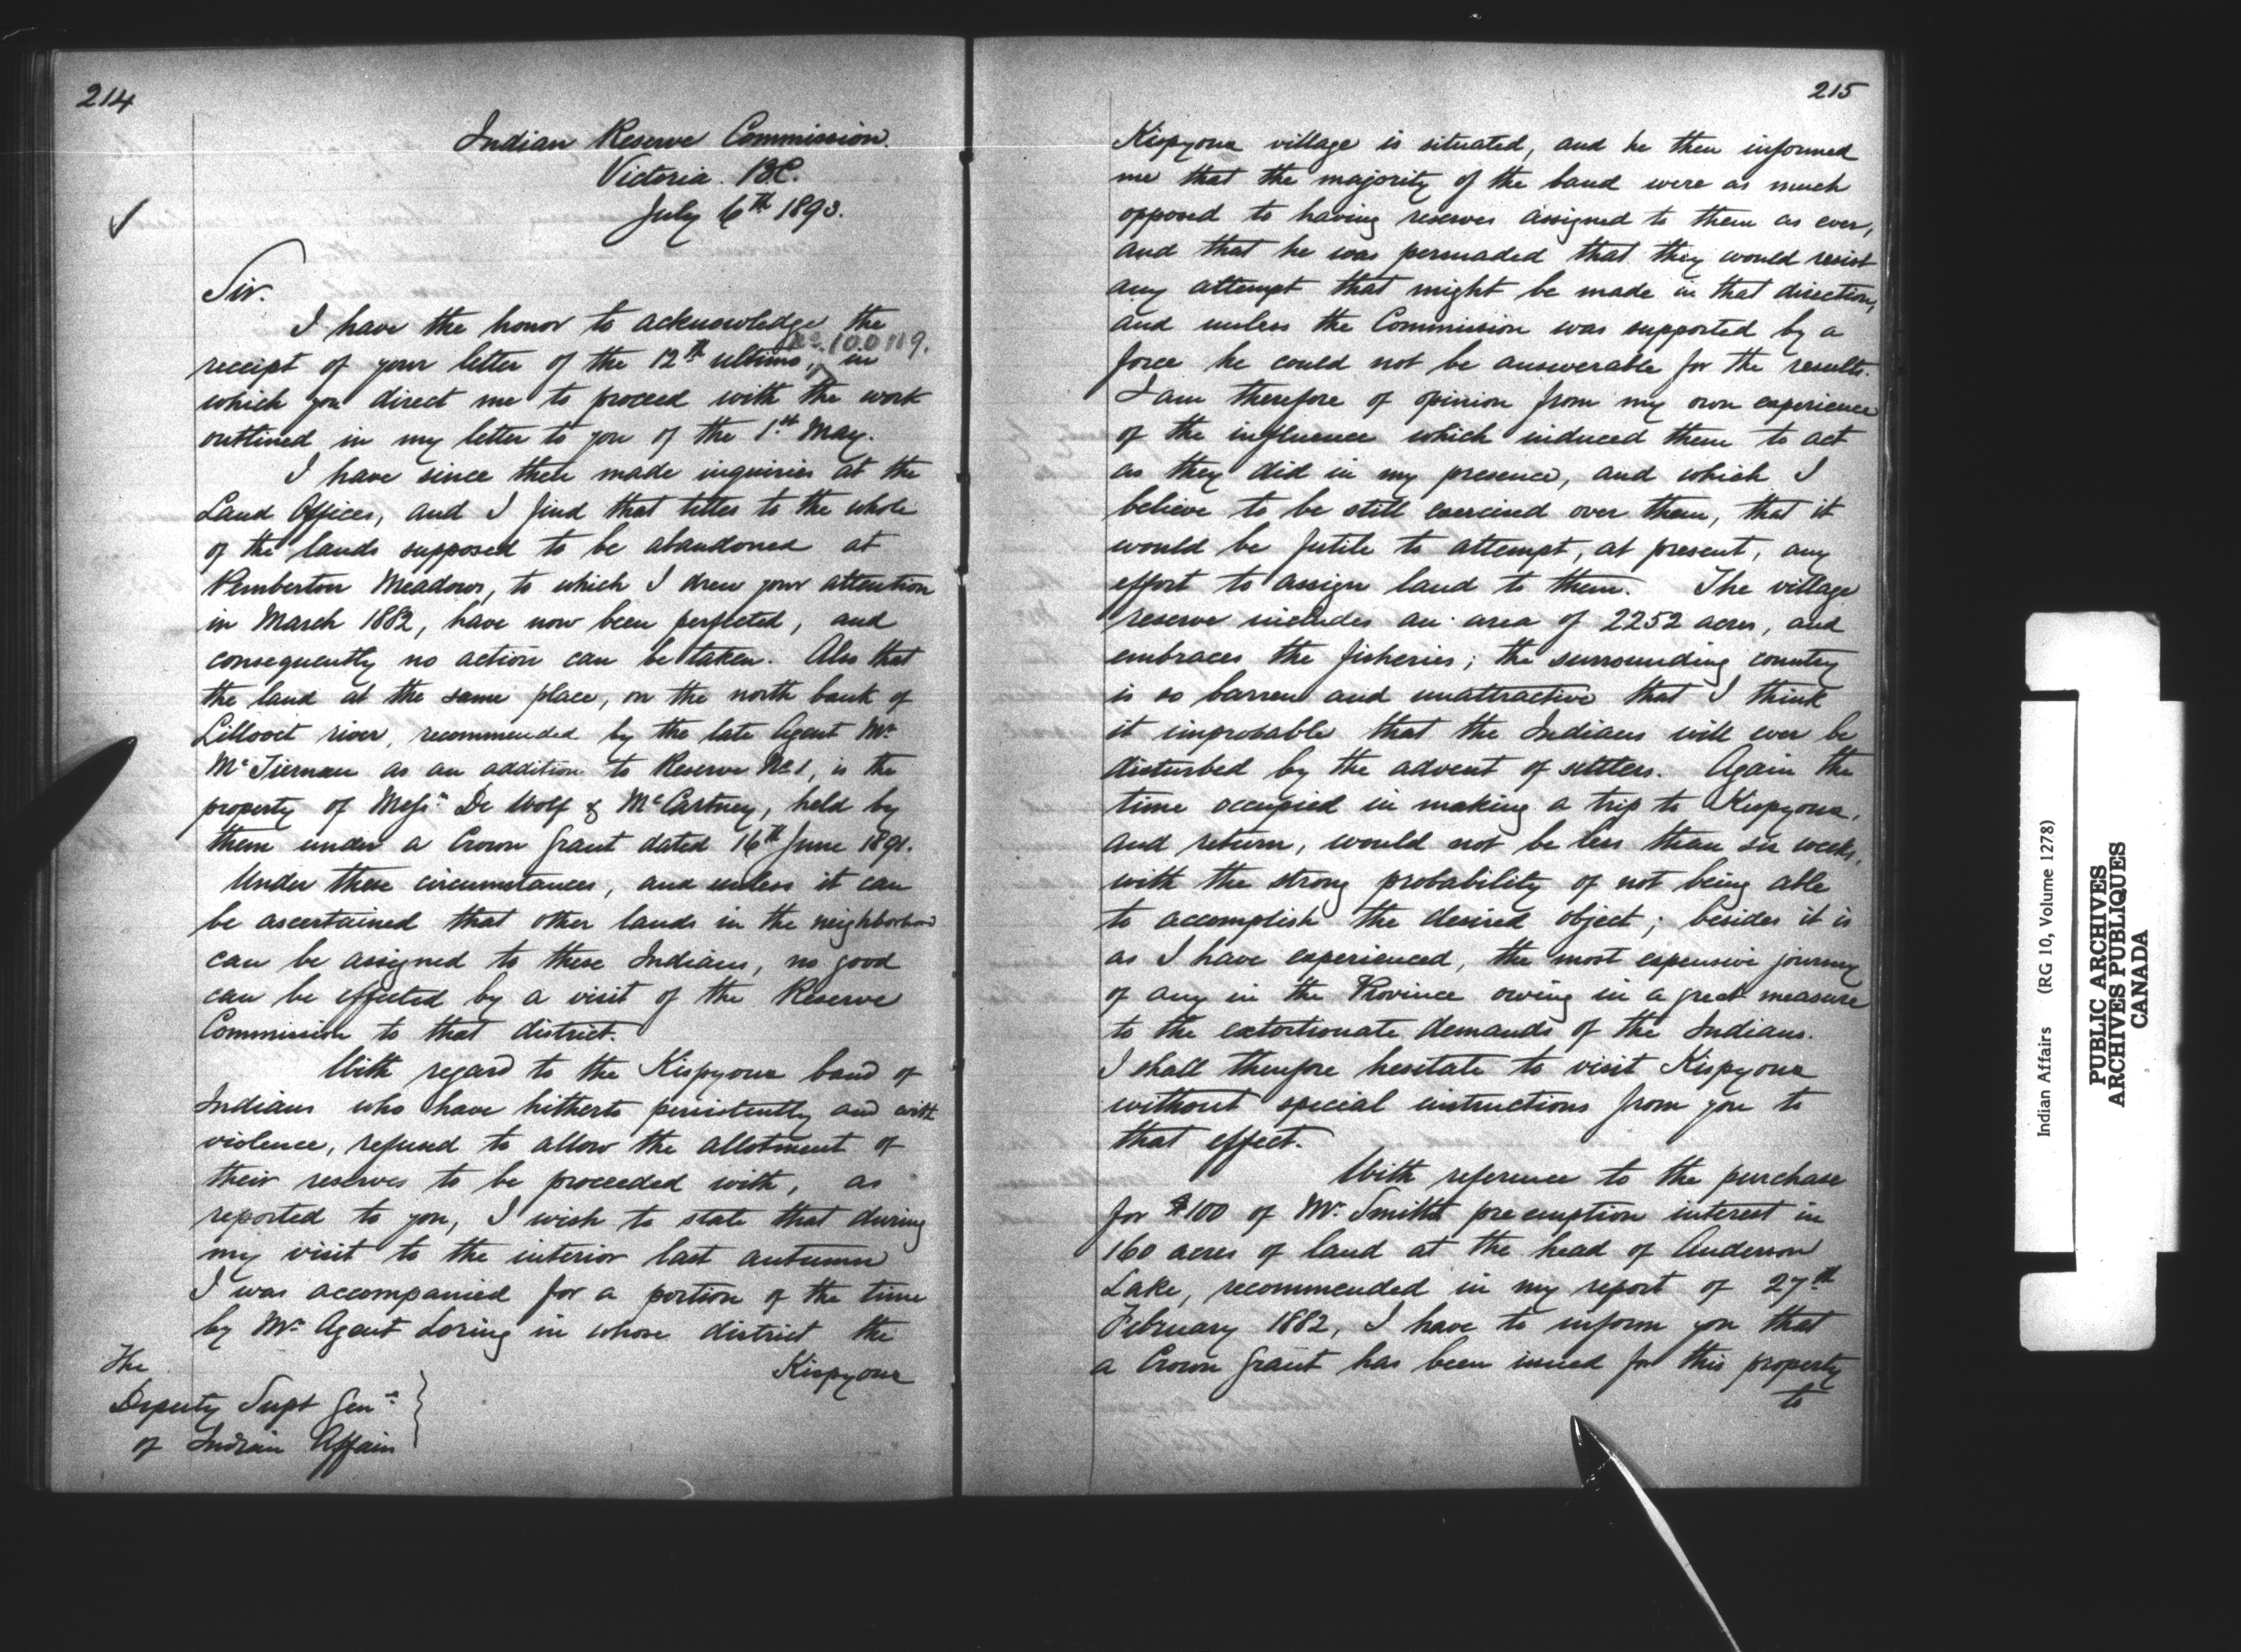 214
Indian Reserve Commission.
Victoria. B.C.
July 6th 1893.
Sir.
I have the honor to acknowledge the
No 100119.
receipt of your letter of the 12th ultimo, in
which you direct me to proceed with the work
outlined in my letter to you of the 1st May.
I have since then made inquiries at the
Land Offices, and I find that titles to the whole
of the lands supposed to be abandoned at
Pemberton Meadows, to which I drew your attention
in March 1882, have now been perfected, and
consequently no action can be taken. Also that
the land at the same place, on the north bank of
Lillooet river, recommended by the late Agent Mr
McTiernan as an addition to Reserve No 1, is the
property of Messrs De Wolf & McCartney, held by
them under a Crown Grant dated 16th June 1891.
Under these circumstances, and unless it can
be ascertained that other lands in the neighborhood
can be assigned to these Indians, no good
can be effected by a visit of the Reserve
Commission to that district.
With regard to the Kispyoux band of
Indians who have hitherto persistently and with
violence, refused to allow the allotment of
their reserves to be proceeded with, as
reported to you, I wish to state that during
my visit to the interior last autumn
I was accompanied for a portion of the time
by Mr Agent Loring in whose district the
Kispyoux
The
Deputy Supt Genl
of Indian Affairs
215
Kispyoux village is situated, and he then informed
me that the majority of the band were as much
opposed to having reserves assigned to them as ever,
and that he was persuaded that they would resist
any attempt that might be made in that direction,
and unless the Commission was supported by a
force he could not be answerable for the results.
I am therefore of opinion from my own experience
of the influence which induced them to act
as they did in my presence, and which I
believe to be still exercised over them, that it
would be futile to attempt, at present, any
effort to assign land to them. The village
reserve includes an area of 2252 acres, and
embraces the fisheries; the surrounding country
is so barren and unattractive that I think
it improbable that the Indians will ever be
disturbed by the advent of settlers. Again the
time occupied in making a trip to Kispyoux,
and return, would not be less than six weeks,
with the strong probability of not being able
to accomplish the desired object; besides it is
as I have experienced, the most expensive journey
of any in the Province owing in a great measure
to the extortionate demands of the Indians.
I shall therefore hesitate to visit Kispyoux
without special instructions from you to
that effect.
With reference to the purchase
for $100 of Mr. Smith's preemption interest in
160 acres of land at the head of Anderson
Lake, recommended in my report of 27th
February 1882, I have to inform you that
a Crown Grant has been issued for this property
to
Indian Affairs (RG 10, Volume 1278)
PUBLIC ARCHIVES
ARCHIVES PUBLIQUES
CANADA